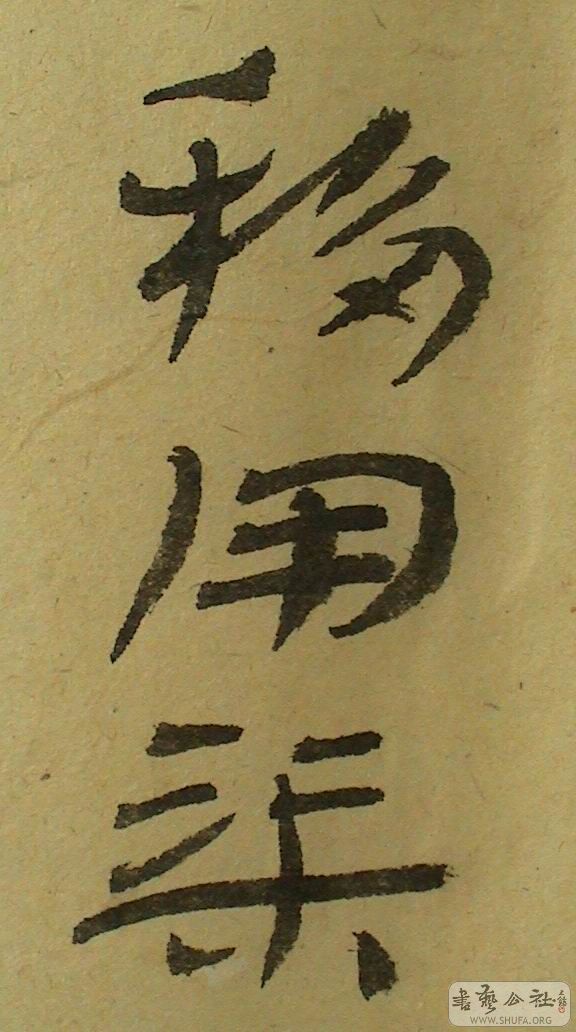 移用
書藝公社
WWW.SHUFA.ORG